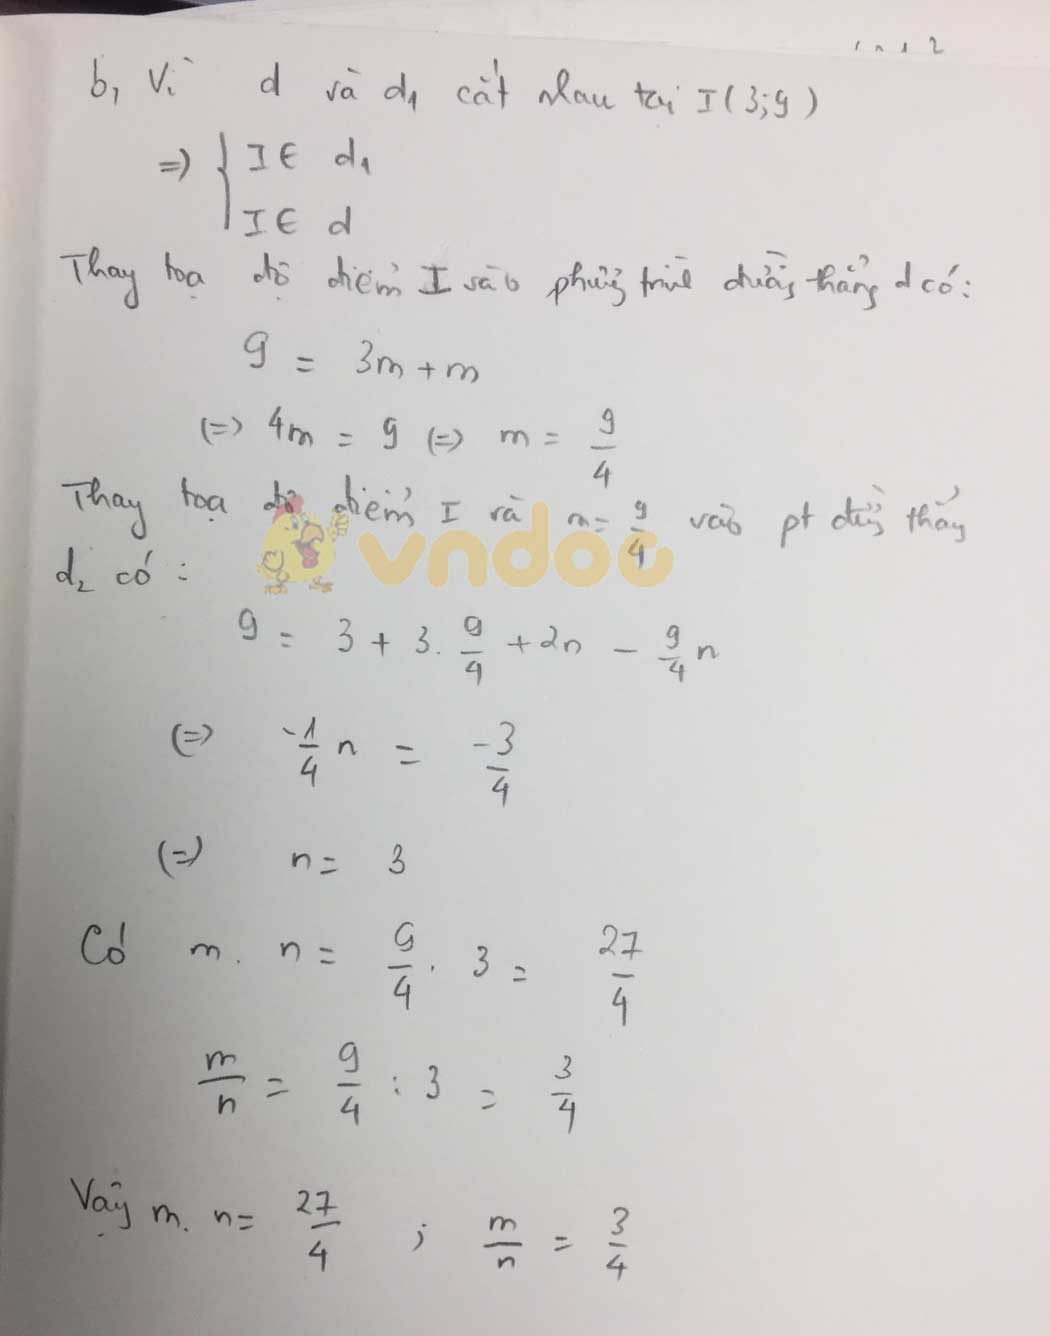 b, Vì d và d₁ cắt nhau tại I(3;9)
=> { I ∈ d₁
I ∈ d
Thay toạ độ điểm I vào phương trình đường thẳng d có:
9 = 3m + m
(=> 4m = 9 (=> m = 9/4
Thay toạ độ điểm I và m = 9/4 vào pt đường thẳng
d₂ có :
vndoc
9 = 3 + 3. 9/4 + 2n - 9/4 n
(=> -1/4 n = -3/4
(=> n = 3
Có m. n = 9/4 . 3 = 27/4
m/n = 9/4 : 3 = 3/4
Vậy m. n = 27/4 ; m/n = 3/4